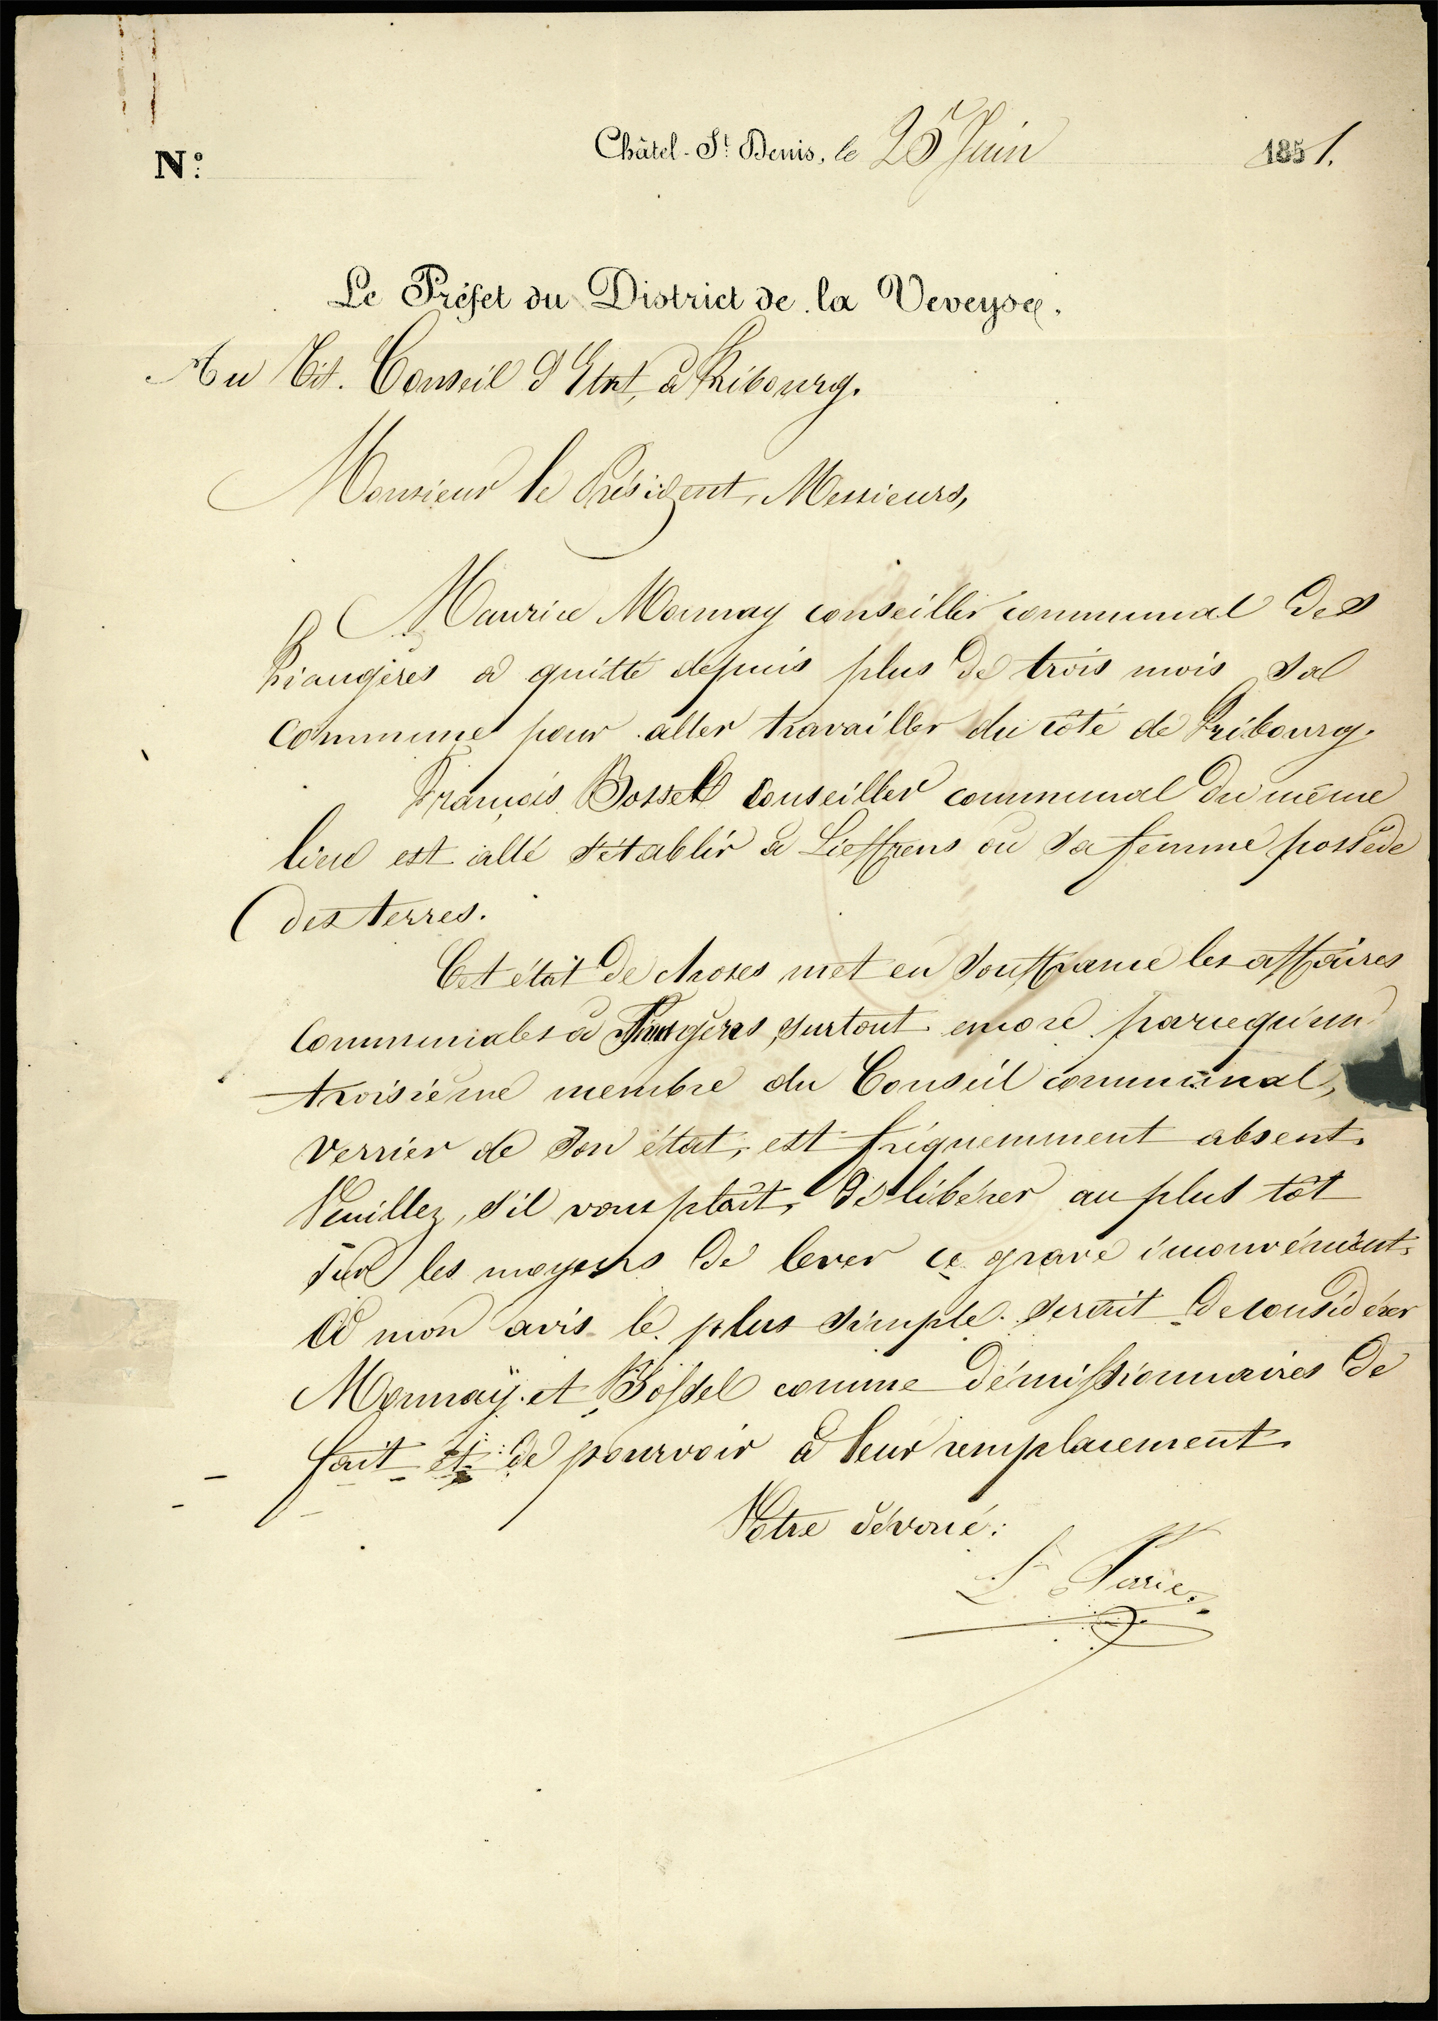 Nº:
Châtel-St Denis, le 25 Juin 1851.
Le Préfet du District de la Veveyse.
Au Tit. Conseil d'Etat, à Fribourg.
Monsieur le Président, Messieurs,
Maurice Monnay conseiller communal des
Fiaugères a quitté depuis plus de trois mois sa
commune pour aller travailler du côté de Fribourg.
François Bossel conseiller communal du même
lieu est allé s'établir à Lieffrens où sa femme possède
des terres.
Cet état de choses met en souffrance les affaires
communales à Fiaugères, surtout encore parcequ'un
troisième membre du Conseil communal,
verrier de son état, est fréquemment absent.
Veuillez, s'il vous plaît, délibérer au plus tôt
sur les moyens de lever ce grave inconvénient.
A mon avis le plus simple serait de considérer
Monnaÿ et Bossel comme démissionnaires de
fait et de pourvoir à leur remplacement.
Votre dévoué: